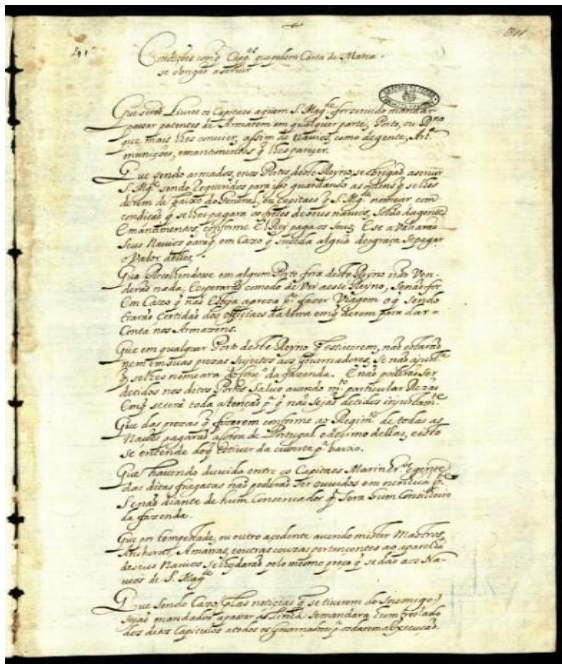 Condições com q̃ Cap.es que pedem Carta de Marca
se obrigão a servir
Que serão Livres os Capitaes aquem S. Mag.de for servido mandar
passar patentes de Armarem em qualquer parte, Porto, ou Ryno
que mais lhes convier, assim de Navios, como de gente, Art.a
munições, e mantimentos q̃ lhes parecer.
Que sendo armados, en os Portos deste Reyno se obrigão a servir
S. Mg.de sendo Requeridos para isso guardando as ordens q̃ se lhes
derem de baixo do General, ou Capitaes q̃ S. Mg.de nomear com
condição q̃ se lhes pagara os fretes de seus navios, Soldo da gente,
Emantimentos, conforme El Rey paga os Seus, E se avaliarão
Seus Navios para q̃ em Cazo q̃ suceda algũa desgraça se pague
o Valor delles.
Que Recolhendosse em algum Porto fora deste Reyno não Ven-
derão nada,
Em Cazo q̃ não esteja a preza p.a fazer Viagem o q̃ Sendo
trarão Certidão dos officiaes da terra em q̃ derem para dar
Conta nos Armazens.
Que em qualquer Porto deste Reyno q̃ estiverem, não estarão
nem em suas prezas sujeitos aos Governadores, Se não
q̃ se lhes nomeara da fazenda. E não poderão ser
detidos nos ditos Portos Salvo avendo particular Rezão
Em q̃ se terá toda atenção p.a q̃ não sejão detidos injustam.te
Que das prezas q̃ fizerem conforme ao Regim.to de todas as
Naus pagarão a de Portugal o dezimo dellas, e isto
se entende do q̃ estiver da cuberta p.a baixo.
Que havendo duvida entre os Capitaes Marinhr.os E gente
das ditas fragatas não poderão ser ouvidos em nenhũa p.te
Senão diante de hum Conservador q̃ Sera hum Conselheiro
da fazenda.
Que por tempestade, ou outro acidente avendo mister Mastros,
Anchoras, Amarras, e outras couzas pertencentes ao aparelho
de seus Navios se lhe darão pelo mesmo preço q̃ se dão aos Na-
vios de S. Mag.de
Que Sendo Cazo q̃ pelas noticias q̃ se tiverem do Inimigo,
Sejão mandados a Semandara hum treslado
dos ditos Capitulos atodos os Governadores p.a ordarem a Execução.